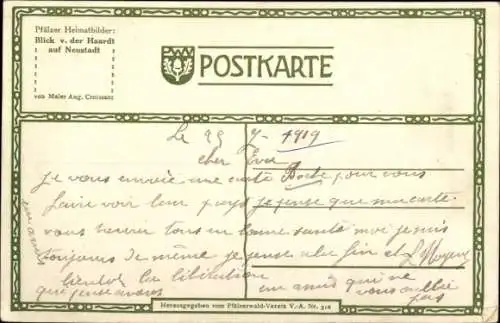 Pfälzer Heimatbilder:
Blick v. der Haardt
auf Neustadt
von Maler Aug. Croissant
POSTKARTE
Le 22 7 1919
cher Eva
je vous envoie une carte Boche pour vous
faire voir leur pays je pense que ma carte
vous tous en bonne santé moi je suis
toujours de même je pense fin et
bientôt la libération un ami qui ne
qui pense à vous vous oublie
pas
Herausgegeben vom Pfälzerwald-Verein V.-A. Nr. 318